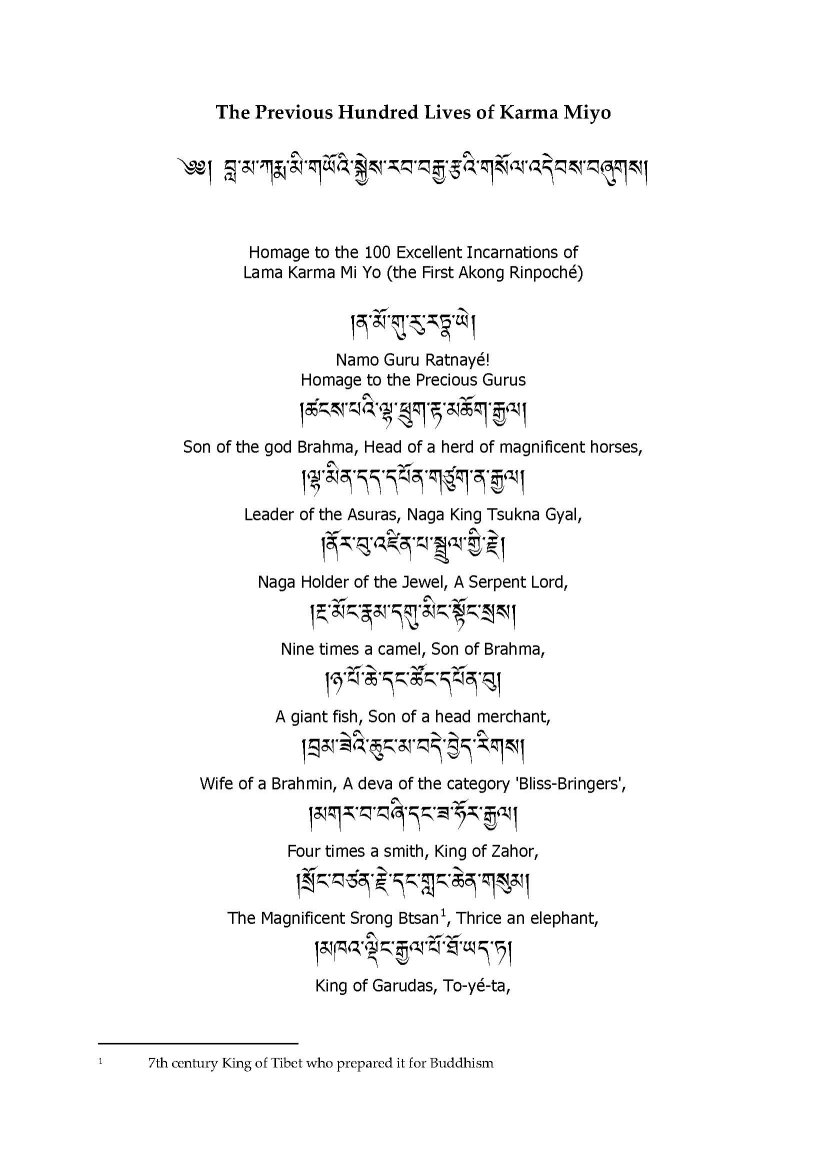 The Previous Hundred Lives of Karma Miyo
༄༅། བླ་མ་ཀརྨ་མི་གཡོའི་སྐྱེས་རབ་བརྒྱ་རྩའི་གསོལ་འདེབས་བཞུགས།
Homage to the 100 Excellent Incarnations of
Lama Karma Mi Yo (the First Akong Rinpoché)
།ན་མོ་གུ་རུ་རཏྣ་ཡེ།
Namo Guru Ratnayé!
Homage to the Precious Gurus
།ཚངས་པའི་ལྷ་ཕྲུག་རྟ་མཆོག་རྒྱལ།
Son of the god Brahma, Head of a herd of magnificent horses,
།ལྷ་མིན་དད་དཔོན་གཙུག་ན་རྒྱལ།
Leader of the Asuras, Naga King Tsukna Gyal,
།ནོར་བུ་འཛིན་པ་སྦྲུལ་གྱི་རྗེ།
Naga Holder of the Jewel, A Serpent Lord,
།རྔ་མོང་རྣམ་དགུ་མིང་སྟོང་སྲས།
Nine times a camel, Son of Brahma,
།ཉ་པོ་ཆེ་དང་ཚོང་དཔོན་བུ།
A giant fish, Son of a head merchant,
།བྲམ་ཟེའི་ཆུང་མ་བདེ་བྱེད་རིགས།
Wife of a Brahmin, A deva of the category 'Bliss-Bringers',
།མགར་བ་བཞི་དང་ཟ་ཧོར་རྒྱལ།
Four times a smith, King of Zahor,
།སྲོང་བཙན་རྗེ་དང་གླང་ཆེན་གསུམ།
The Magnificent Srong Btsan1, Thrice an elephant,
།མཁའ་ལྡིང་རྒྱལ་པོ་ཐོ་ཡད་ཏ།
King of Garudas, To-yé-ta,
1 7th century King of Tibet who prepared it for Buddhism